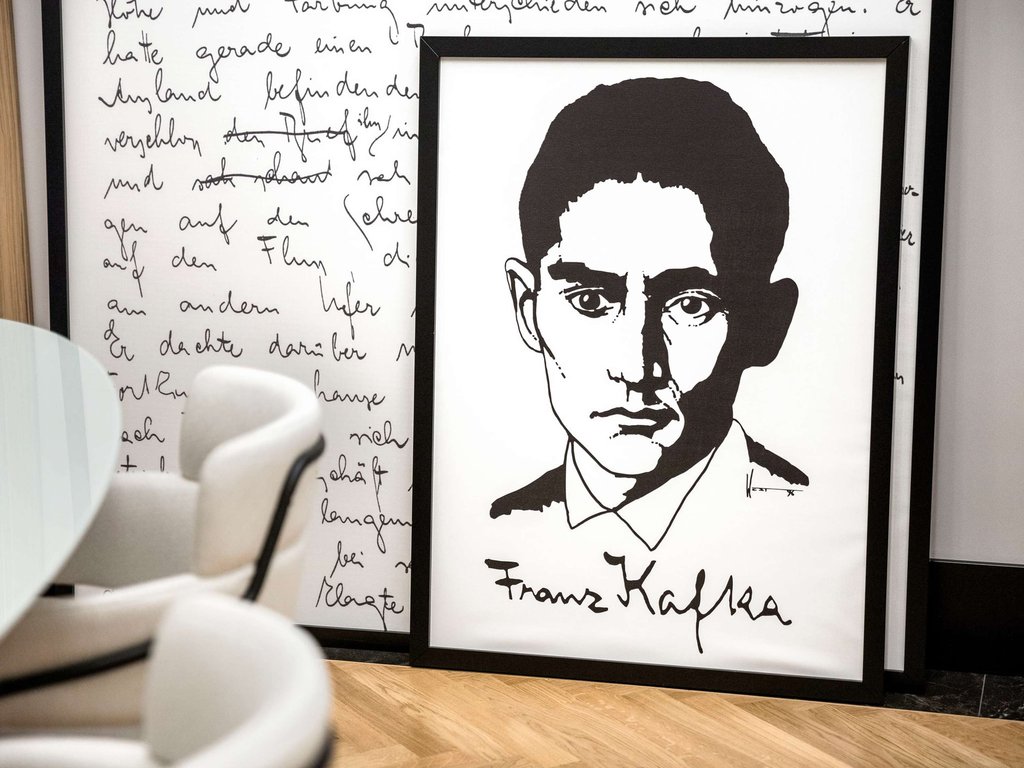 Höhe und Färbung unterschieden sich hinzogen. Er
hatte gerade einen
Ausland befindenden
verschloss den Brief ihn in
und sah
gen auf den Schre
auf den Fluss, di
am andern Ufer
Er dachte darüber n
hause
ach sich
schäft
langem
bei s
klagte
Franz Kafka